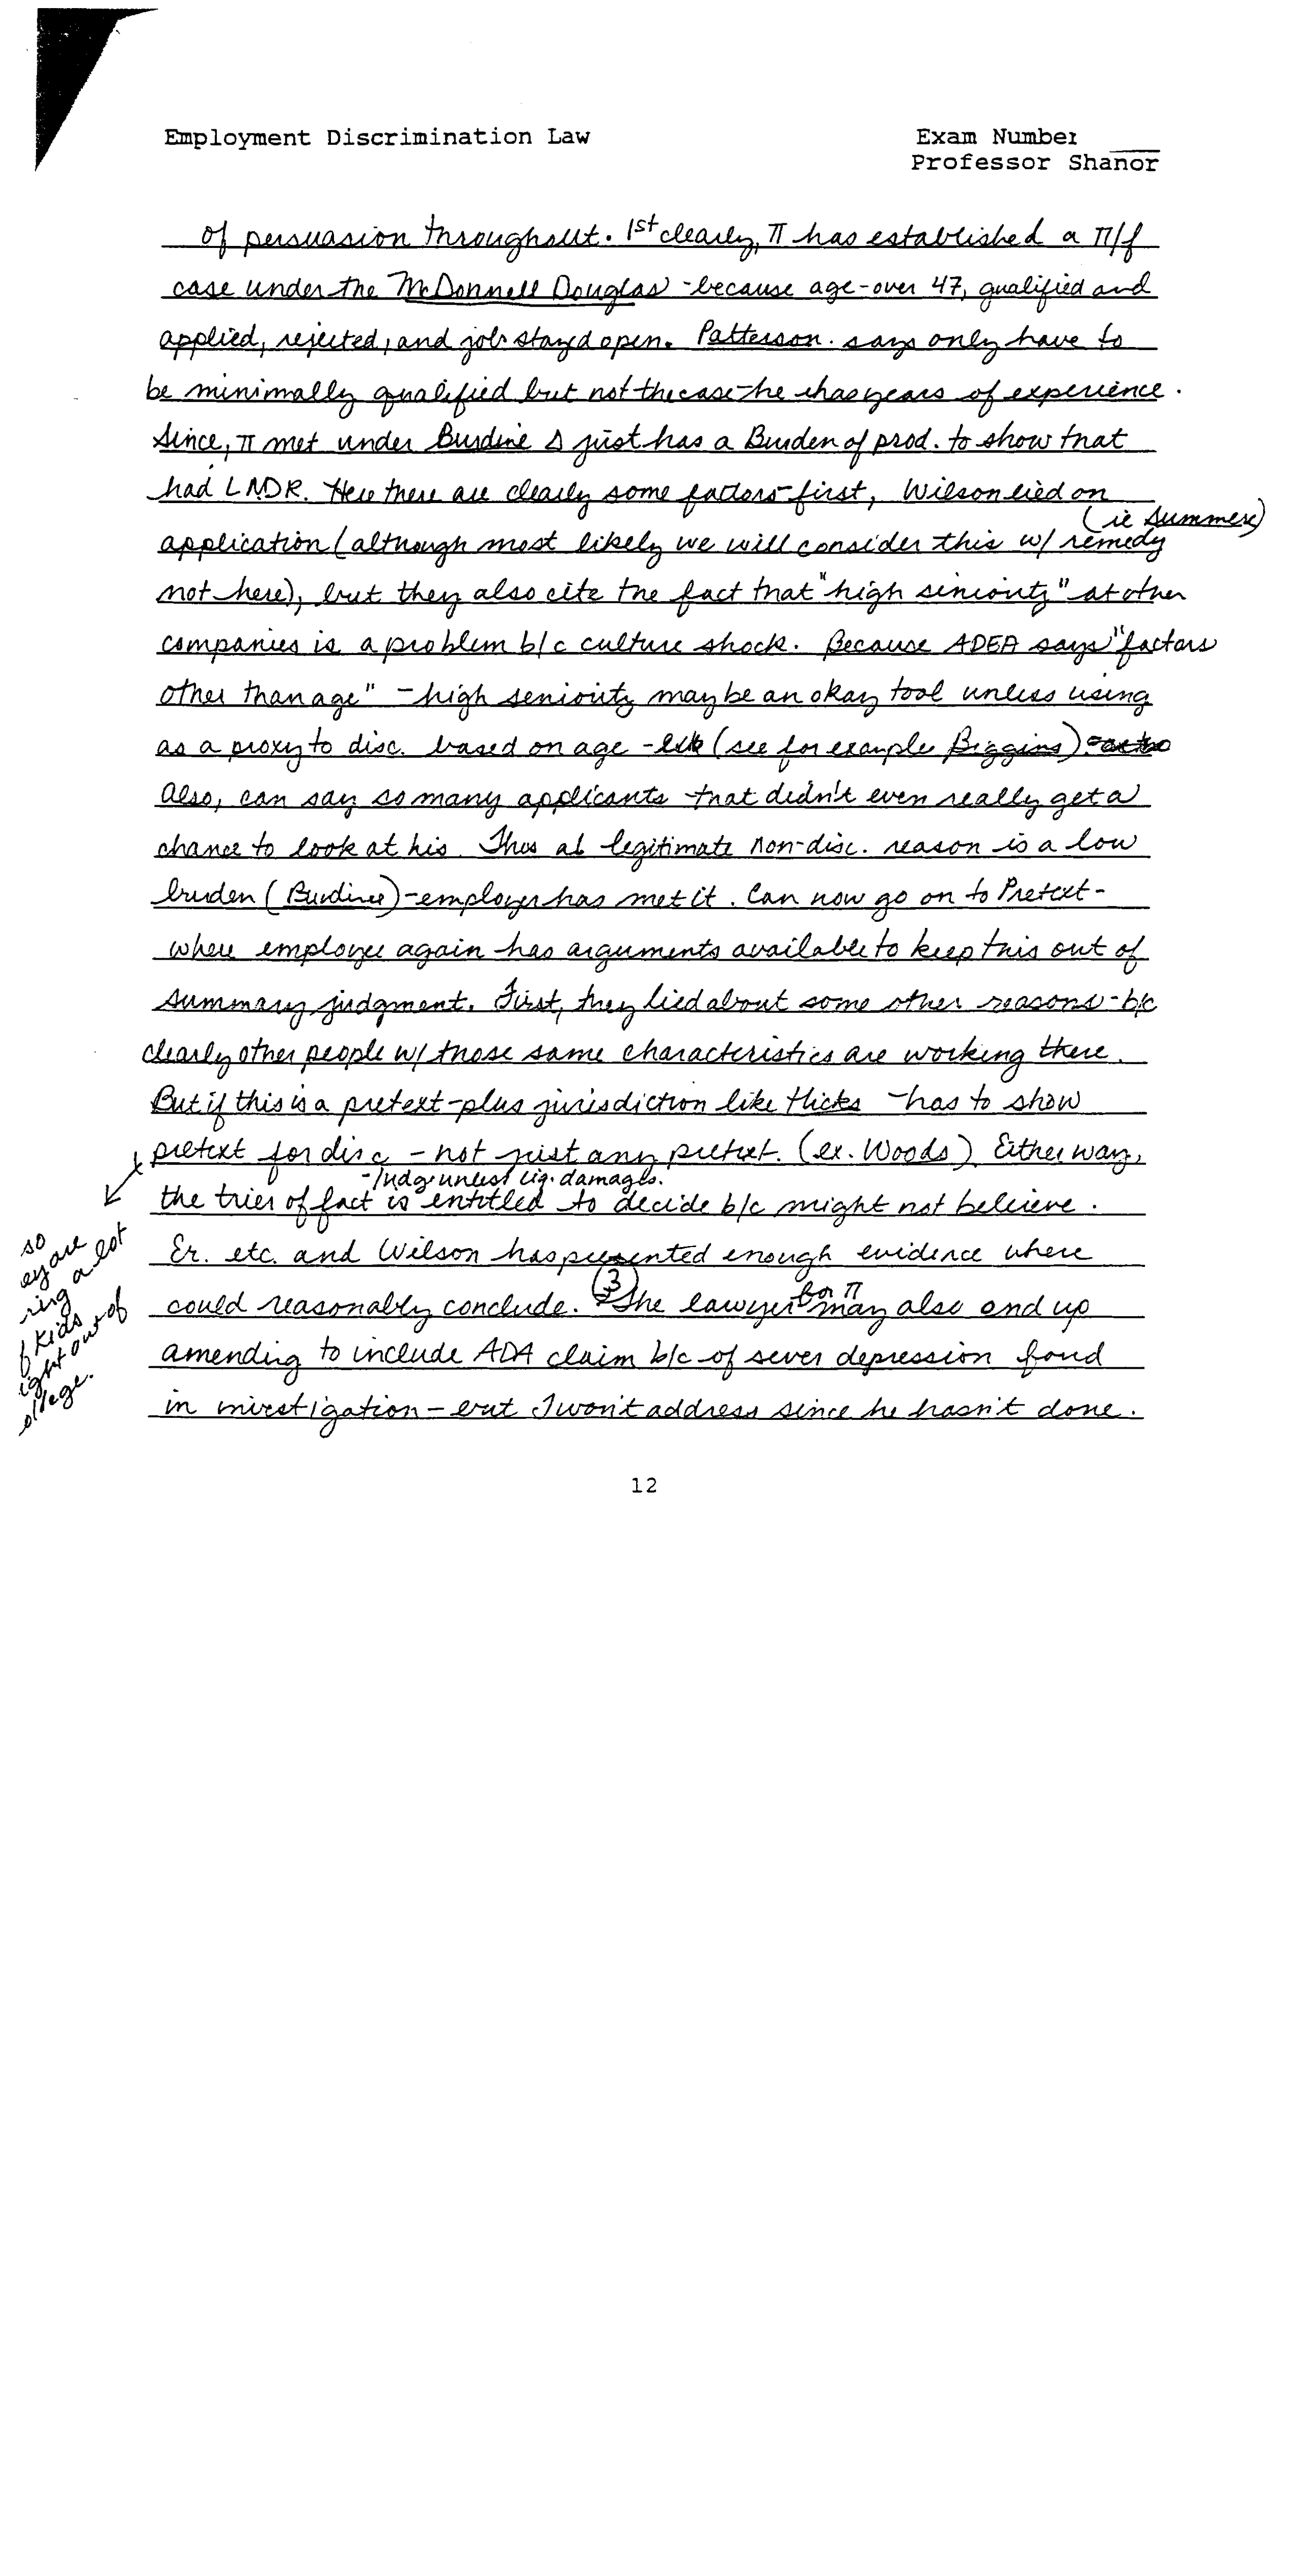 Employment Discrimination Law Exam Number
Professor Shanor
of persuasion throughout. 1st clearly, π has established a π/f
case under the McDonnell Douglas - because age - over 47, qualified and
applied, rejected, and job stayed open. Patterson. says only have to
be minimally qualified but not the case - he has years of experience.
Since, π met under Burdine Δ just has a Burden of prod. to show that
had LNDR. Here there are clearly some factors - first, Wilson lied on
(ie Summers)
application (although most likely we will consider this w/ remedy
not here), but they also cite the fact that "high seniority" at other
companies is a problem b/c culture shock. Because ADEA says "factors
other than age" - high seniority may be an okay tool unless using
as a proxy to disc. based on age - (see for example Biggins).
Also, can say so many applicants that didn't even really get a
chance to look at his. Thus legitimate non-disc. reason is a low
burden (Burdine) - employer has met it. Can now go on to Pretext -
where employee again has arguments available to keep this out of
summary judgment. First, they lied about some other reasons - b/c
clearly other people w/ those same characteristics are working there.
But if this is a pretext-plus jurisdiction like Hicks - has to show
pretext for disc - not just any pretext. (ex. Woods) Either way,
- Judge unless liq. damages.
the trier of fact is entitled to decide b/c might not believe.
Er. etc. and Wilson has presented enough evidence where
could reasonably conclude. (3) The lawyer for π may also end up
amending to include ADA claim b/c of sever depression found
in investigation - but I won't address since he hasn't done.
so
ey are
ring a lot
f kids
ight out of
ollege.
12